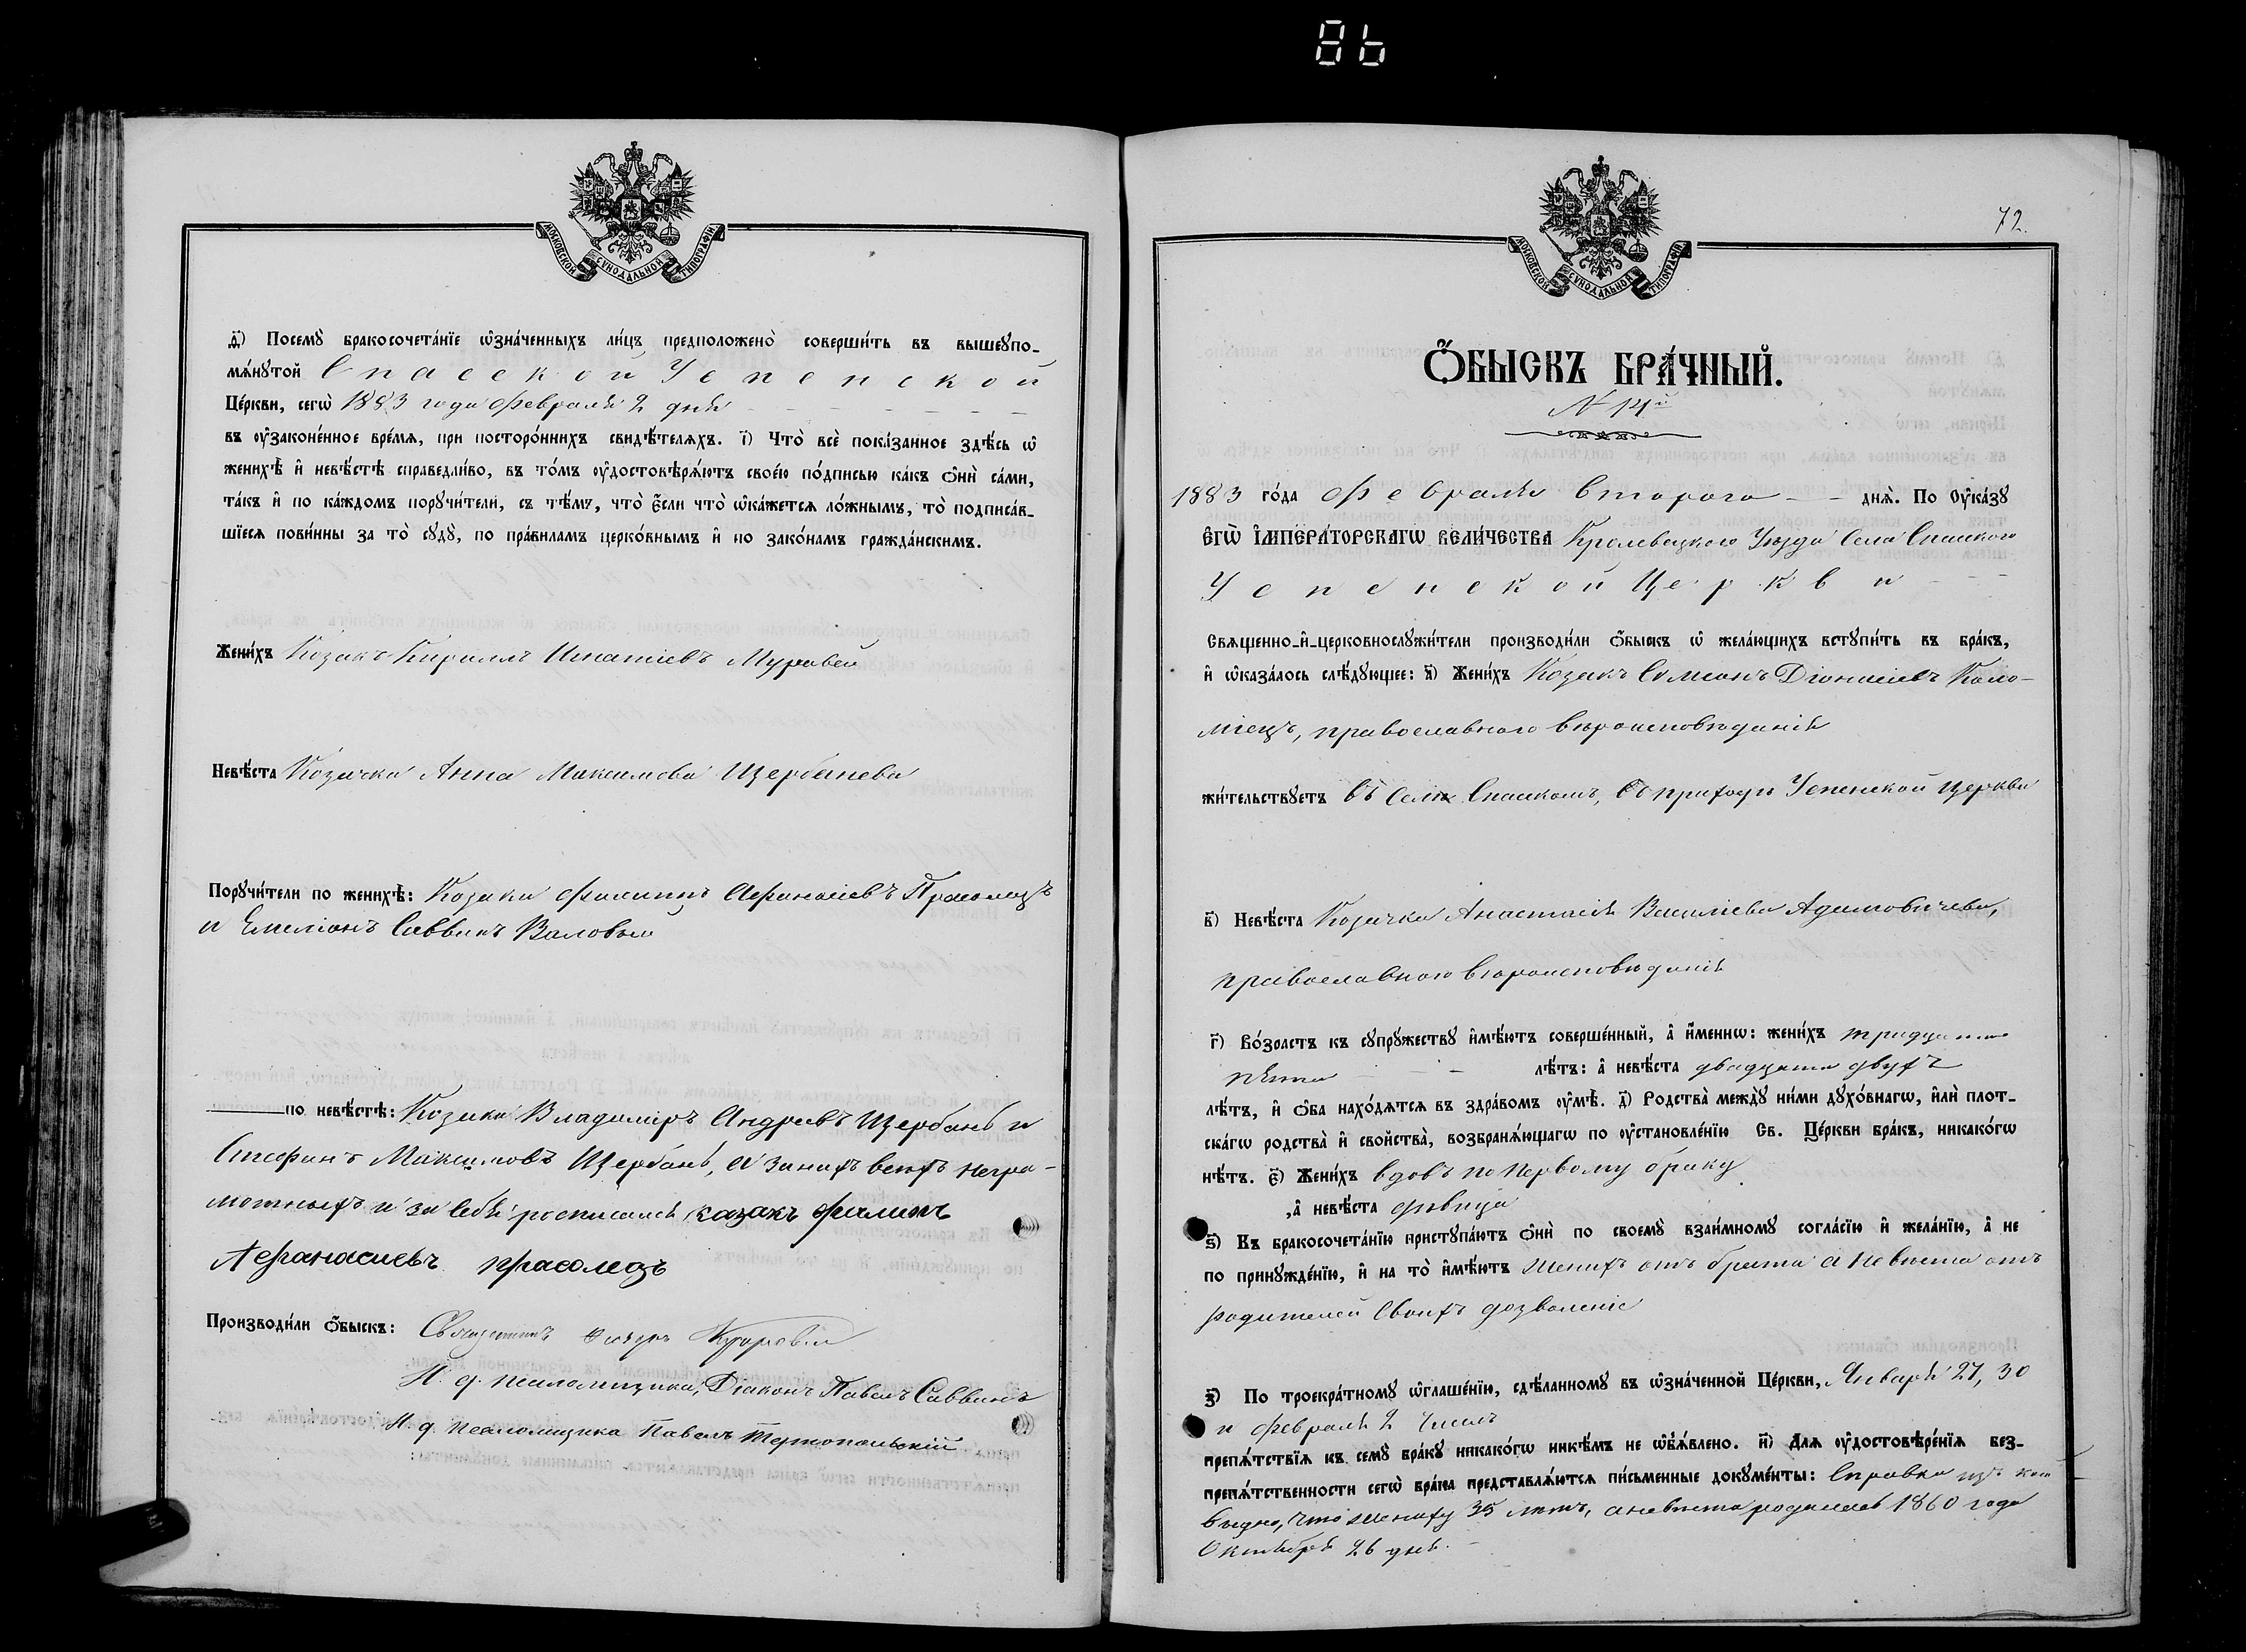 86
МОСКОВСКОЙ СѴНОДАЛЬНОЙ ТИПОГРАФІИ
д҃) Посемꙋ̀ бракосочета́нїе ѡ҆зна́ченныхъ ли́цъ предположено̀ соверши́ть въ вышеꙋпо-
мѧ́нꙋтой Спасской Успенской
Це́ркви, сегѡ̀ 1883 года Февраля 2 дня
въ ᲂу҆законе́нное вре́мѧ, при посторо́ннихъ свидѣ́телѧхъ. і҃) Что̀ всѐ пока́занное здѣ́сь ѡ҆
женихѣ̀ и҆ невѣ́стѣ справедли́во, въ то́мъ ᲂу҆достовѣрѧ́ютъ свое́ю по́дписью ка́къ ѻ҆нѝ са́ми,
та́къ и҆ по ка́ждомъ порꙋчи́тели, съ тѣ́мъ, что̀ є҆́сли что̀ ѡ҆ка́жетсѧ ло́жнымъ, то̀ подписа́в-
шїесѧ пови́нны за то̀ сꙋдꙋ̀, по пра́виламъ церко́внымъ и҆ по зако́намъ гражда́нскимъ.
Жени́хъ Козакъ Кириллъ Игнатіевъ Муравей
Невѣ́ста Козачка Анна Максимова Щербанева
Порꙋчи́тели по женихѣ̀: Козаки Филиппъ Афанасіевъ Прасолецъ
и Емеліанъ Саввинъ Валовый
по невѣ́стѣ: Козаки Владиміръ Андреевъ Щербань и
Стефанъ Максимовъ Щербань, а за нихъ всѣхъ негра-
мотныхъ и за себя росписался казакъ Филипъ
Афанасиевъ прасолецъ
Производи́ли ѻ҆́быскъ: Священникъ
И. д. псаломщика, Діаконъ Павелъ Саввинъ
И. д. псаломщика Павелъ Тернопольскій
72.
МОСКОВСКОЙ СѴНОДАЛЬНОЙ ТИПОГРАФІИ
Ѻ҆́БЫСКЪ БРА́ЧНЫЙ.
№ 14й
1883 го́да Февраля втораго днѧ̀. По Оу҆ка́зꙋ
Є҆ГѠ̀ И҆МПЕРА́ТОРСКАГѠ ВЕЛИ́ЧЕСТВА Кролевецкого Уѣзда Села Спаского
Успенской Церкви
Свѧщенно-и҆-церковнослꙋжи́тели производи́ли ѻ҆́быскъ ѡ҆ жела́ющихъ встꙋпи́ть въ бра́къ,
и҆ ѡ҆каза́лось слѣ́дꙋющее: а҃) Жени́хъ Козакъ Симеонъ Діонисіевъ Коло-
міецъ, православного вѣроисповѣданія
жи́тельствꙋетъ въ Селѣ Спаскомъ, въ приходѣ Успенской церкви
в҃) Невѣ́ста Козачка Анастасія Василіева Адамовичева,
православного вѣроисповѣданія
г҃) Во́зрастъ къ сꙋпрꙋ́жествꙋ и҆мѣ́ютъ соверше́нный, а҆ и҆́меннѡ: жени́хъ тридцати
пяти лѣ́тъ: а҆ невѣ́ста двадцати двухъ
лѣ́тъ, и҆ ѻ҆́ба нахо́дѧтсѧ въ здра́вомъ ᲂу҆мѣ̀. д҃) Родства̀ междꙋ̀ ни́ми дꙋхо́внагѡ, и҆лѝ плот-
ска́гѡ родства̀ и҆ свойства̀, возбранѧ́ющагѡ по ᲂу҆становле́нїю Св. Це́ркви бра́къ, никако́гѡ
нѣ́тъ. є҃) Жени́хъ вдовъ по первому браку
, а҆ невѣ́ста дѣвица
ѕ҃) Къ бракосочета́нїю пристꙋпа́ютъ ѻ҆нѝ по своемꙋ̀ взаи́мномꙋ согла́сїю и҆ жела́нїю, а҆ не
по принꙋжде́нїю, и҆ на то̀ и҆мѣ́ютъ женихъ отъ брата а невѣста отъ
родителей своихъ дозволеніе
з҃) По троекра́тномꙋ ѡ҆глаше́нїю, сдѣ́ланномꙋ въ ѡ҆зна́ченной Це́ркви, Января 27, 30
и Февраля 2 чиселъ
препѧ́тствїѧ къ семꙋ̀ бра́кꙋ никако́гѡ никѣ́мъ не ѡ҆б̾ѧ́влено. и҃) Длѧ ᲂу҆достовѣре́нїѧ без-
препѧ́тственности сегѡ̀ бра́ка представлѧ́ютсѧ пи́сьменные докꙋме́нты: Справка изъ кой
видно, что жениху 35 лѣтъ, а невѣста родилась 1860 года
Октября 26 дня.